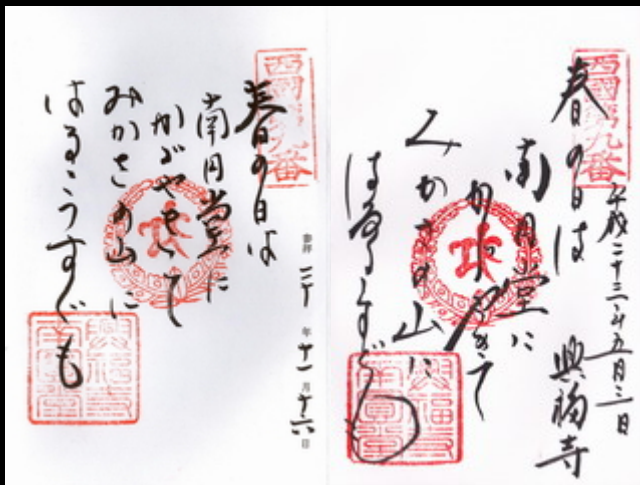 西国第九番
春の日は
平成二十三年五月三日
南円堂に
かゞやきて
みかさの山に
はるゝうすぐも
興福寺
興福寺
南円堂
西国第九番
春の日は
南円堂に
かゞやきて
みかさの山に
はるゝうすぐも
参拝 二十 年 十一 月 十六 日
興福寺
南円堂